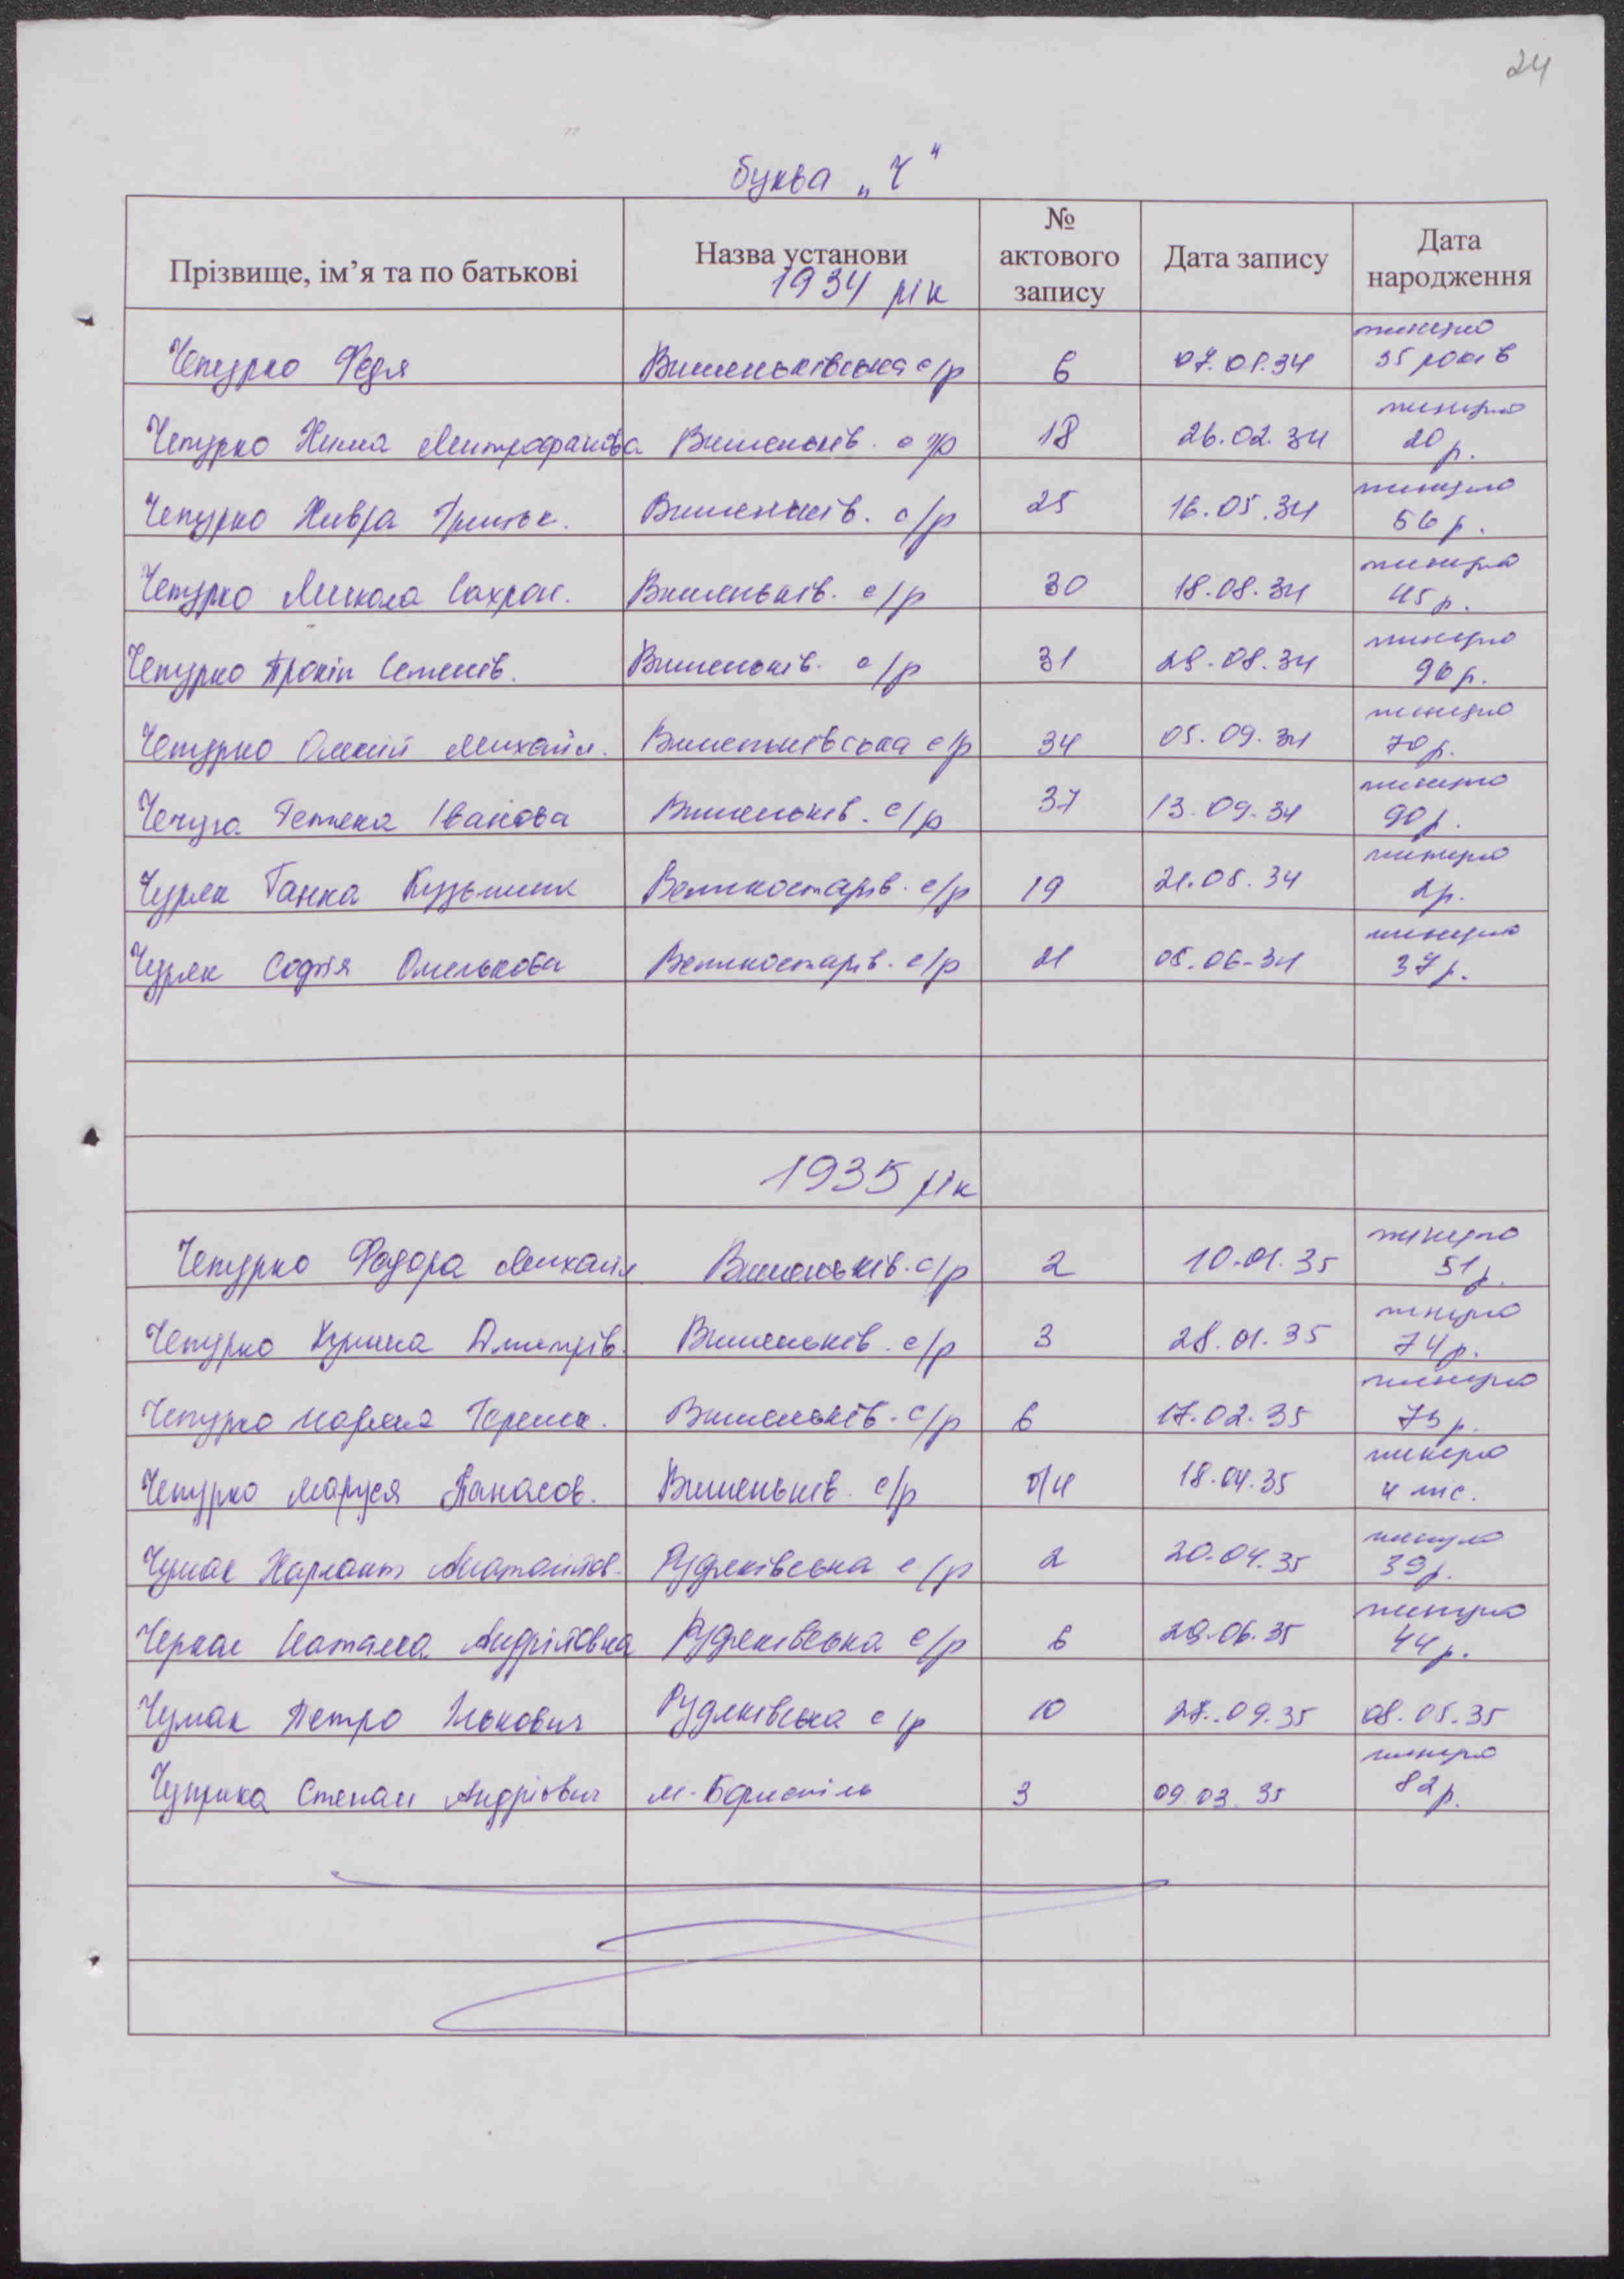 24
буква „Ч"
Прізвище, ім’я та по батькові Назва установи № актового запису Дата запису Дата народження
1934 рік
Чепурко Федя Вишеньківська с/р 6 07.01.34 минуло 35 років
Чепурко Химa Митрофанова Вишеньків. с/р 18 26.02.34 минуло 20 р.
Чепурко Хивря Грицьк. Вишеньків. с/р 25 16.05.34 минуло 56 р.
Чепурко Микола Сахрон. Вишеньків. с/р 30 18.08.34 минуло 45 р.
Чепурко Прокіп Семенів. Вишеньків. с/р 31 29.08.34 минуло 90 р.
Чепурко Олекій Михайл. Вишеньківська с/р 34 05.09.34 минуло 70 р.
Чечуга Іванова Вишеньків. с/р 37 13.09.34 минуло 90 р.
Чуряк Ганка Кузьмник Великостарів. с/р 19 21.05.34 минуло 2 р.
Чуряк Софія Омелькова Великостарів. с/р 21 05.06.34 минуло 37 р.
1935 рік
Чепурко Федора Михайл Вишеньків. с/р 2 10.01.35 минуло 51 р.
Чепурко Дмитрів. Вишеньків. с/р 3 28.01.35 минуло 74 р.
Чепурко Марина Вишеньків. с/р 6 17.02.35 минуло 73 р.
Чепурко Маруся Панасов. Вишеньків. с/р б/н 18.04.35 минуло 4 міс.
Чумак Рудяківська с/р 2 20.04.35 минуло 39 р.
Черкас Наталка Андріївна Рудяківська с/р 6 29.06.35 минуло 44 р.
Чумак Петро Ількович Рудяківська с/р 10 27.09.35 08.05.35
Чуприна Степан Андрійович м. Бориспіль 3 09.03.35 минуло 82 р.